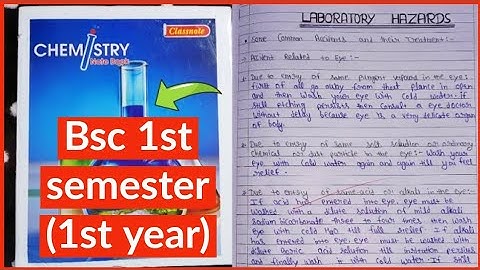 Classnote
CHEMISTRY
Note Book
Bsc 1st
semester
(1st year)
LABORATORY HAZARDS
Some Common Accidents and their Treatment:-
Accident Related to Eye:-
Due to entry of some pungent vapour in the eye:
first of all go away from that place in open
and then wash your eye with cold water. If
still itching persists then contact a eye doctor
without delay because eye is a very delicate organ
of body
Due to entry of some salt solution or ordinary
chemical or dust particle in the eye:- Wash your
eye with cold water again and again till you feel
relief.
Due to entry of some acid or alkali in the eye:-
If acid has entered into eye, eye must be
washed with a dilute solution of mild alkali
sodium bicarbonate three to four times then wash
eye with cold H2O till full relief. If alkali
has entered into eye, eye must be washed with
dilute Boric acid solution till irritation persists
and finally wash with cold water. If still